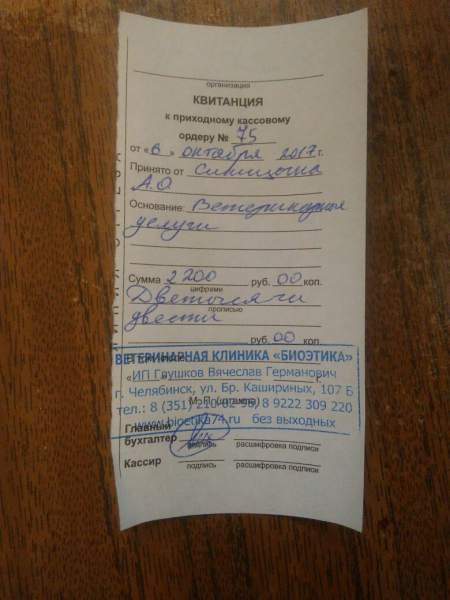 организация
КВИТАНЦИЯ
к приходному кассовому
ордеру № 75
от «6» октября 2017 г.
Принято от
А.О
Основание: Ветеринарные
услуги
Сумма 2 200 руб. 00 коп.
цифрами
Две тысячи
прописью
двести
руб. 00 коп.
ВЕТЕРИНАРНАЯ КЛИНИКА «БИОЭТИКА»
ИП Глушков Вячеслав Германович
г. Челябинск, ул. Бр. Кашириных, 107 Б
М.П. (штампа)
тел.: 8 (351) 8 9222 309 220
www.bioetika74.ru без выходных
Главный
бухгалтер
подпись расшифровка подписи
Кассир
подпись расшифровка подписи